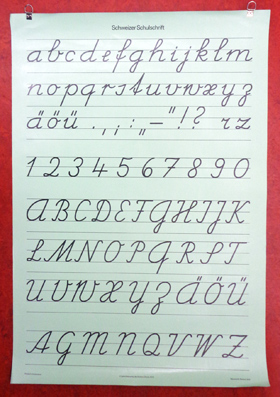 Schweizer Schulschrift
abcdefghijklm
nopqrstuvwxyz
äöü . , ; : „ – " ! ? rz
1 2 3 4 5 6 7 8 9 0
ABCDEFGHIJK
LMNOPQRST
UVWXYZÄÖÜ
AGMNQVWZ